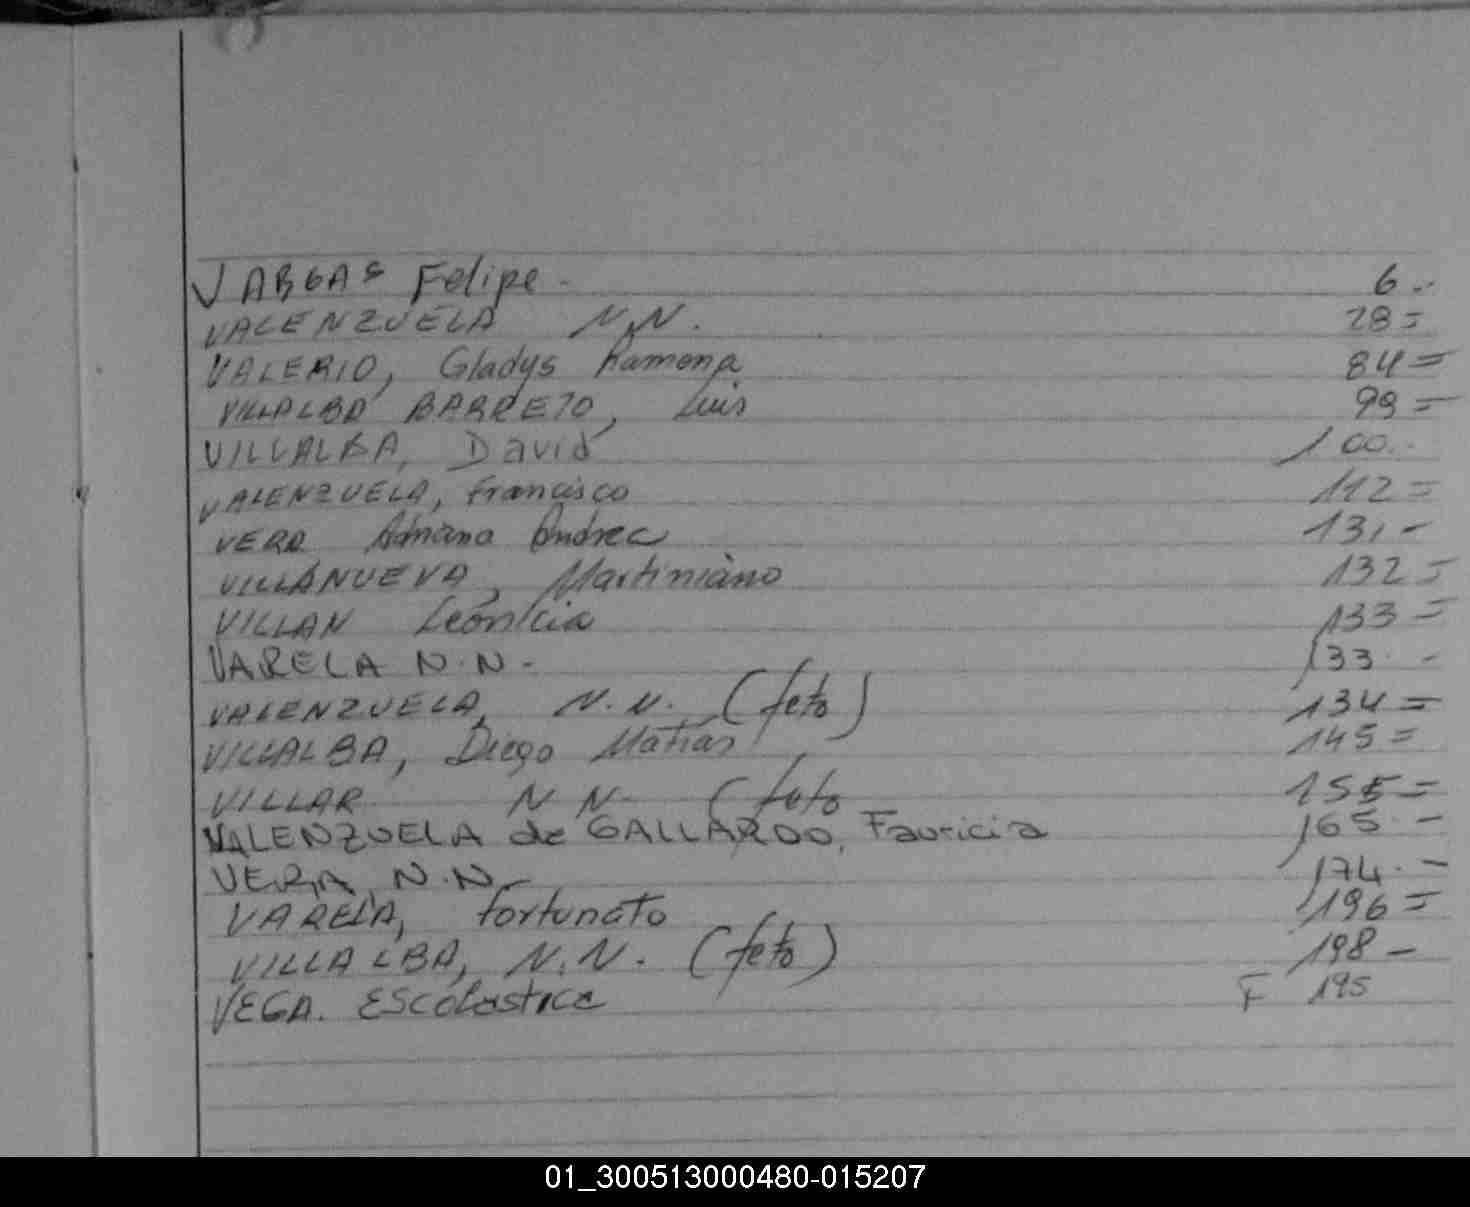 VARGAS Felipe - 6 --
VALENZUELA N.N. 28=
VALERIO, Gladys Ramona 84=
VILLALBA BARRETO, Luis 99=
VILLALBA, David 100--
VALENZUELA, Francisco 112=
VERA Adriana Andrea 131-
VILLANUEVA, Martiniano 132=
VILLAN 133=
VARELA N.N.- 133 -
VALENZUELA, N.N. (feto) 134=
VILLALBA, Diego Matias 145=
VILLAR N N- (feto 155=
VALENZUELA de GALLARDO, Fauricia 165 -
VERA, N.N. 174 -
VARELA, Fortunato 196=
VILLALBA, N.N. (feto) 198-
VEGA. Escolastica F 195
01_300513000480-015207